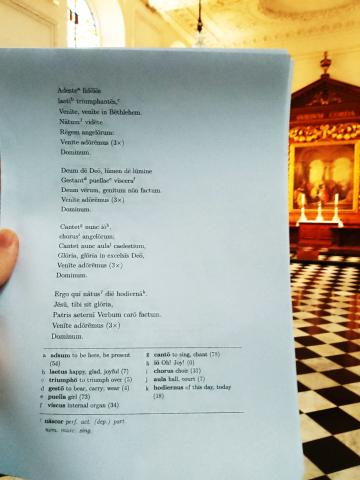 Adesteᵃ fidēlēs
laetīᵇ triumphantēs,ᶜ
Venīte, venīte in Bēthlehem.
Nātumᶠ vidēte
Rēgem angelōrum:
Venīte adōrēmus (3×)
Dominum.
Deum dē Deō, lūmen dē lūmine
Gestantᵈ puellaeᵉ visceraᶠ
Deum vērum, genitum nōn factum.
Venīte adōrēmus (3×)
Dominum.
Cantetᵍ nunc iōʰ,
chorusⁱ angelōrum;
Cantet nunc aulaʲ caelestium,
Glōria, glōria in excelsīs Deō,
Venīte adōrēmus (3×)
Dominum.
Ergo quī nātusᶠ diē hodiernāᵏ.
Jēsū, tibi sit glōria,
Patris aeternī Verbum carō factum.
Venīte adōrēmus (3×)
Dominum.
a adsum to be here, be present (54)
b laetus happy, glad, joyful (7)
c triumphō to triumph over (5)
d gestō to bear, carry, wear (4)
e puella girl (73)
f viscus internal organ (34)
g cantō to sing, chant (78)
h iō Oh! Joy! (0)
i chorus choir (31)
j aula hall, court (7)
k hodiernus of this day, today (18)
nāscor perf. act. (dep.) part.
nom. masc. sing.